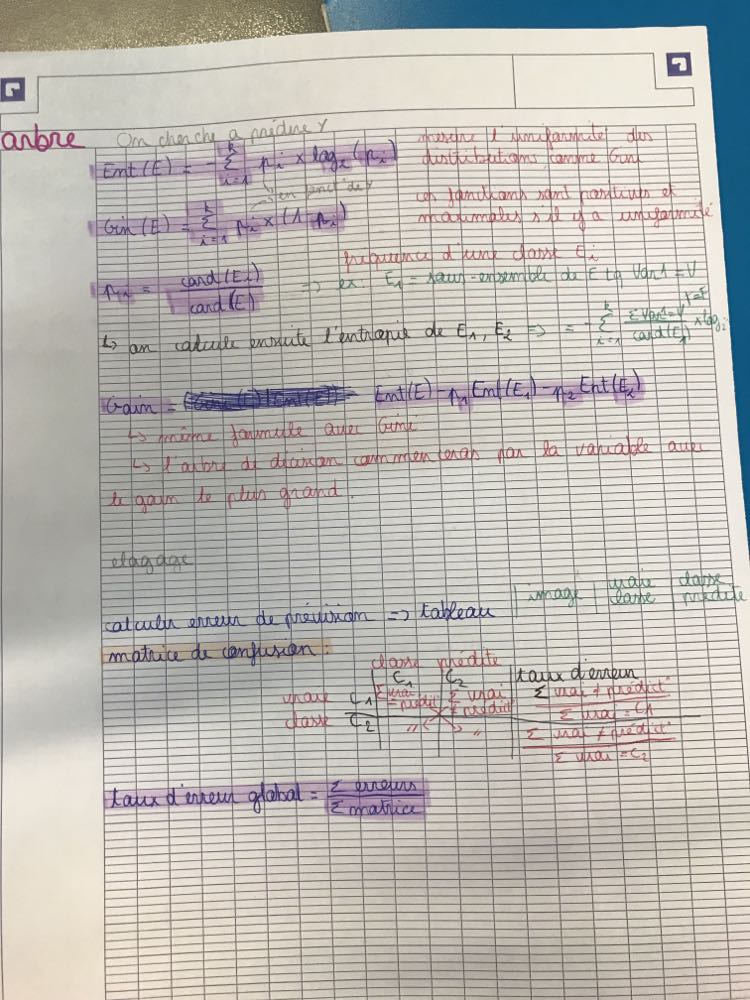 arbre
On cherche a prédire Y
Ent(E) = - Σ_{i=1}^{k} p_i × log_2(p_i)
mesure l'uniformité des
distributions comme Gini
en fonct de Y
Gini(E) = Σ_{i=1}^{k} p_i × (1 - p_i)
ces fonctions sont positives et
maximales s'il y a uniformité
fréquence d'une classe E_i
p_i = card(E_i) / card(E) => ex: E_1 = sous-ensemble de E tq Var1 = V
↳ on calcule ensuite l'entropie de E_1, E_2 => = - Σ_{i=1}^{k} Σ Var1=V / card(E_1) × log_2
Gain = Ent(E) - p_1 Ent(E_1) - p_2 Ent(E_2)
↳ même formule avec Gini
↳ l'arbre de décision commenceras par la variable avec
le gain le plus grand.
elagage
calculer erreur de prévision => tableau | image | vraie classe | classe prédite
matrice de confusion :
classe prédite
C_1 C_2 taux d'erreur
vraie C_1 Σ vrai = prédit Σ vrai ≠ prédict° Σ vrai ≠ prédict° / Σ vrai = C1
classe C_2 " " Σ vrai ≠ prédict° / Σ vrai = C_2
taux d'erreur global = Σ erreurs / Σ matrice